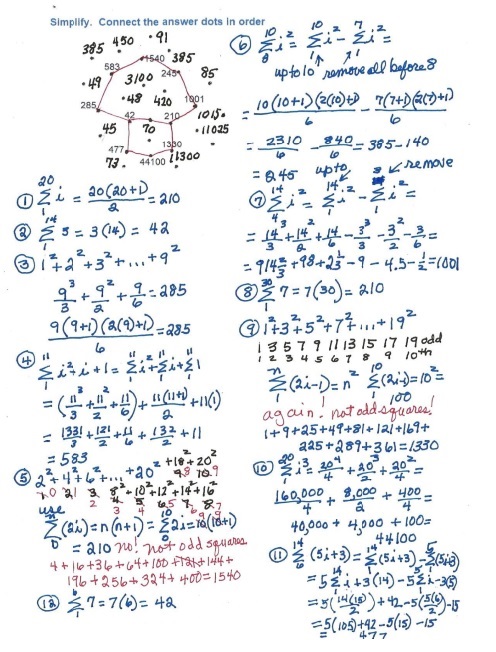 Simplify. Connect the answer dots in order
385 450 91
1540 385
583 245
49 3100 85
48 420
285 1001
42 210 1015
45 70 11025
477 1330
73 44100 11300
① 20 Σ 1 i = 20(20+1)/2 = 210
② 14 Σ 1 = 3(14) = 42
③ 1² + 2² + 3² + ... + 9²
9³/3 + 9²/2 + 9/6 = 285
9(9+1)(2(9)+1)/6 = 285
④ 11 Σ 1 i² + i + 1 = 11 Σ 1 i² + 11 Σ 1 i + 11 Σ 1 1
= (11³/3 + 11²/2 + 11/6) + 11(11+1)/2 + 11(1)
= 1331/3 + 121/2 + 11/6 + 132/2 + 11
= 583
⑤ 2² + 4² + 6² + ... + 20²
+18² + 20²
8² + 10² + 12² + 14² + 16²
use
Σ (2i) = n(n+1) = Σ 2i = 10(10+1)
= 210 no! not odd squares
4 + 16 + 36 + 64 + 100 + 144 +
196 + 256 + 324 + 400 = 1540
⑫ 6 Σ 1 7 = 7(6) = 42
⑥ 10 Σ 8 i² = 10 Σ 1 i² - 7 Σ 1 i² =
up to 10 remove all before 8
= 10(10+1)(2(10)+1)/6 - 7(7+1)(2(7)+1)/6
= 2310/6 - 840/6 = 385 - 140
= 245 up to remove
⑦ 14 Σ 4 i² = 14 Σ 1 i² - 3 Σ 1 i² =
= 14³/3 + 14²/2 + 14/6 - 3³/3 - 3²/2 - 3/6 =
= 914 2/3 + 98 + 2 1/3 - 9 - 4.5 - 1/2 = 1001
⑧ 30 Σ 1 7 = 7(30) = 210
⑨ 1² + 3² + 5² + 7² + ... + 19²
1 3 5 7 9 11 13 15 17 19 odd
1 2 3 4 5 6 7 8 9 10th
n Σ 1 (2i-1) = n² 10 Σ 1 (2i-1) = 10² =
100
again! not odd squares!
1 + 9 + 25 + 49 + 81 + 121 + 169 +
225 + 289 + 361 = 1330
⑩ 20 Σ 1 i³ = 20⁴/4 + 20³/2 + 20²/4 =
160,000/4 + 8,000/2 + 400/4 =
40,000 + 4,000 + 100 =
44100
⑪ 14 Σ 6 (5i+3) = 14 Σ 1 (5i+3) - 5 Σ 1 (5i+3)
= 5 14 Σ 1 i + 3(14) - 5 5 Σ 1 i - 3(5)
= 5(14(15)/2) + 42 - 5(5(6)/2) - 15
= 5(105) + 42 - 5(15) - 15
= 477